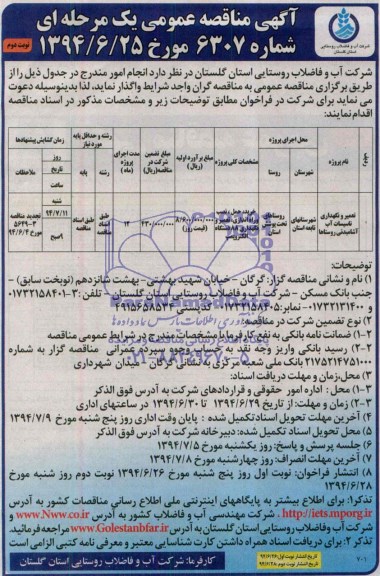 آگهی مناقصه عمومی یک مرحله ای
شماره ۶۳۰۷ مورخ ۱۳۹۴/۶/۲۵
نوبت دوم
شرکت آب و فاضلاب روستایی استان گلستان
شرکت آب و فاضلاب روستایی استان گلستان در نظر دارد انجام امور مندرج در جدول ذیل را از
طریق برگزاری مناقصه عمومی به مناقصه گران واجد شرایط واگذار نماید، لذا بدینوسیله دعوت
می نماید برای شرکت در فراخوان مطابق توضیحات زیر و مشخصات مذکور در اسناد مناقصه
اقدام نمایند:
ردیف
نام پروژه
محل اجرای پروژه
شهرستان
روستا
مشخصات کلی پروژه
مبلغ برآورد اولیه (ریال)
مبلغ تضمین شرکت در مناقصه (ریال)
مدت اجرای پروژه (ماه)
رشته و حداقل پایه مورد نیاز
رشته
پایه
زمان گشایش پیشنهادها
روز
تاریخ
ساعت
ملاحظات
تعمیر و نگهداری تاسیسات آب آشامیدنی روستاها
شهرستانهای تابعه استان
روستاهای تحت پوشش استان
۸/۶۰۰/۰۰۰/۰۰۰
۴۳۰/۰۰۰/۰۰۰
۱۲
طبق اسناد
طبق اسناد
شنبه
۹۴/۷/۱۱
۹صبح
تجدید مناقصه
۵۶۴۹-۳
مورخ ۹۴/۶/۴
توضیحات:
۱) نام و نشانی مناقصه گزار: گرگان - خیابان شهید بهشتی - بهشت شانزدهم (نوبخت سابق) -
جنب بانک مسکن - شرکت آب و فاضلاب روستایی استان گلستان - تلفن: ۳-۰۱۷۳۲۱۵۸۴۰۱
۰۱۷۳۲۱۳۱۴۰۰- نمابر: ۰۱۷۳۲۱۵۸۴۰۵ کدپستی ۴۹۱۵۶۵۸۵۳۴
۲) نوع تضمین شرکت در مناقصه:
۲-۱) ضمانت نامه بانکی به نفع کارفرما با مشخصات مندرج در شرایط عمومی مناقصه
۲-۲) رسید بانکی واریز وجه نقد به حساب وجوه سپرده عمرانی مناقصه گزار به شماره
۲۱۷۵۲۱۴۷۵۱۰۰۰ بانک ملی شعبه مرکزی به نشانی گرگان - میدان شهرداری
۳) محل،زمان و مهلت دریافت اسناد:
۳-۱) محل : اداره امور حقوقی و قراردادهای شرکت به آدرس فوق الذکر
۳-۲) زمان و مهلت: از تاریخ ۱۳۹۴/۶/۲۹ تا ۱۳۹۴/۶/۳۰ در ساعتهای اداری
۴) آخرین مهلت تحویل اسناد تکمیل شده : پایان وقت اداری روز پنج شنبه مورخ ۱۳۹۴/۷/۹
۵) محل تحویل اسناد تکمیل شده: دبیرخانه شرکت به آدرس فوق الذکر
۶) جلسه پرسش و پاسخ: روز یکشنبه مورخ ۱۳۹۴/۷/۵
۷) آخرین مهلت انصراف: روز چهارشنبه مورخ ۱۳۹۴/۷/۸
۸) انتشار فراخوان: نوبت اول روز پنج شنبه مورخ ۱۳۹۴/۶/۲۶ نوبت دوم روز شنبه مورخ
۱۳۹۴/۶/۲۸
تذکر۱: برای اطلاع بیشتر به پایگاههای اینترنتی ملی اطلاع رسانی مناقصات کشور به آدرس
http://iets.mporg.ir ، شرکت مهندسی آب و فاضلاب کشور به آدرس www.Nww.co.ir و
شرکت آب وفاضلاب روستایی استان گلستان به آدرس www.Golestanbfar.ir مراجعه فرمائید.
تذکر ۲: برای دریافت اسناد همراه داشتن کارت شناسایی معتبر و معرفی نامه کتبی الزامی است
کارفرما: شرکت آب و فاضلاب روستایی استان گلستان
تاریخ انتشار نوبت اول ۹۴/۶/۲۶
تاریخ انتشار نوبت دوم ۹۴/۶/۲۸
۷۰۱